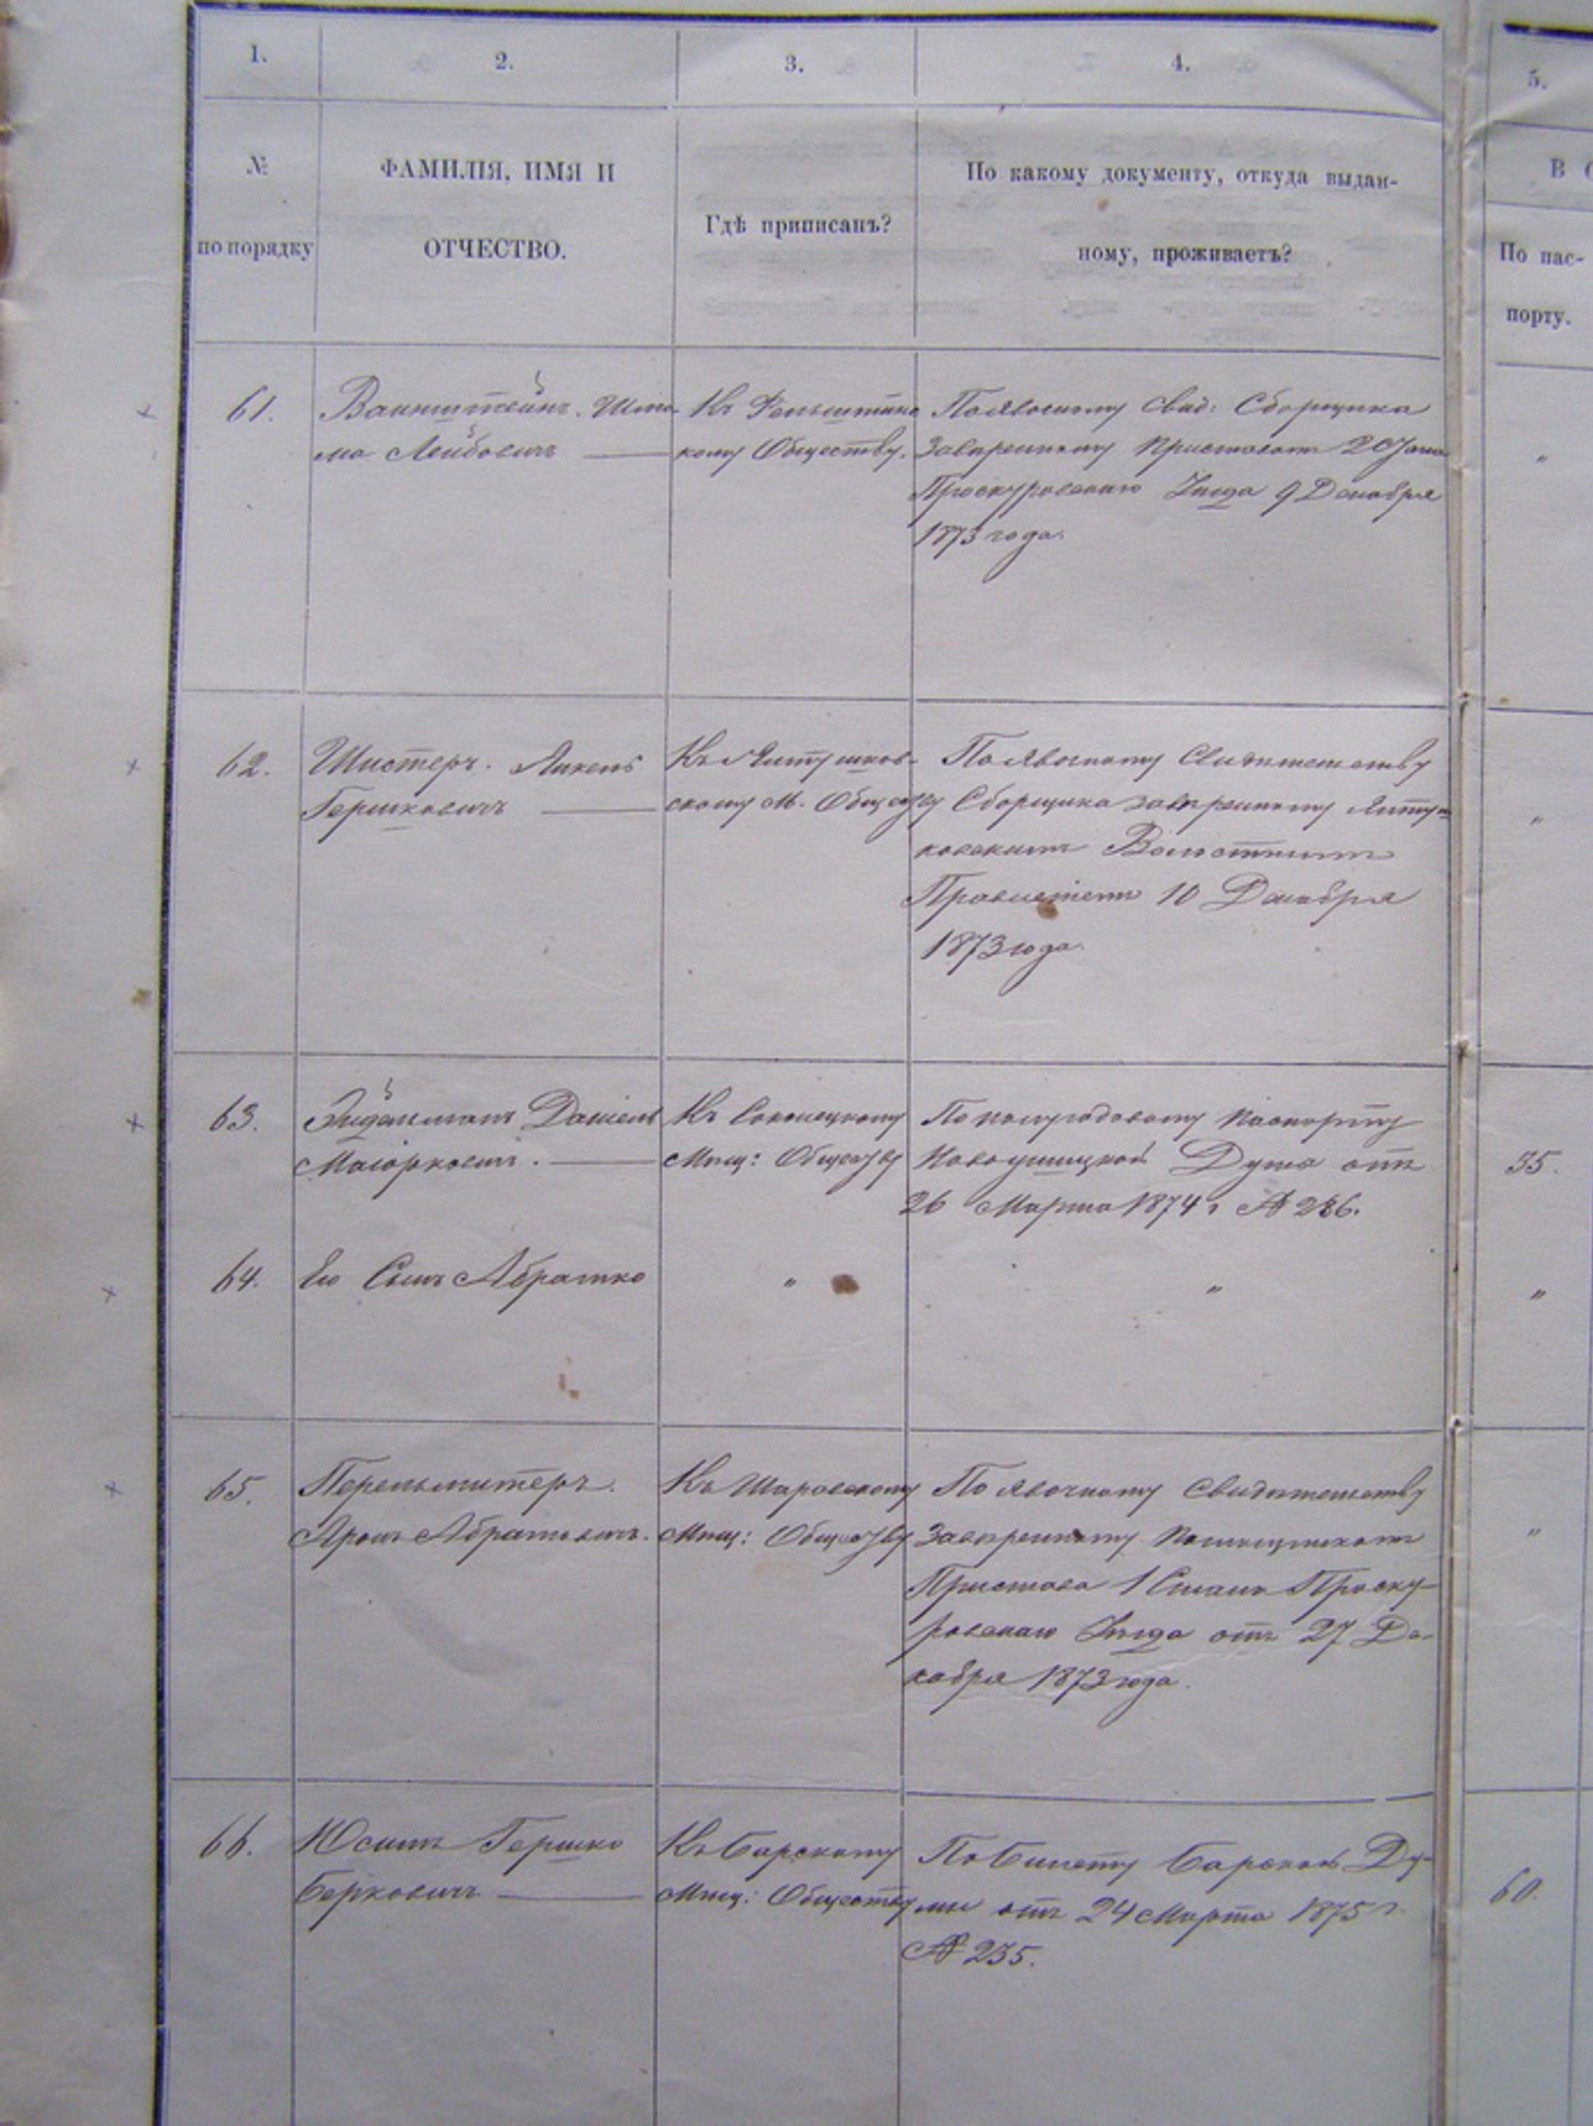 1.
2.
3.
4.
5.
№
по порядку
ФАМИЛІЯ, ИМЯ И
ОТЧЕСТВО.
Гдѣ приписанъ?
По какому документу, откуда выдан-
ному, проживаетъ?
В
По пас-
порту.
61.
Ваинштейнъ. Шли-
ма Лейбовичъ
Къ Фельштинс
кому Обществу.
По явочному Свид: Сборщика
Завѣренному Приставомъ 2го Стана
Проскуровскаго Уѣзда 9 Декабря
1873 года.
"
62.
Шистеръ. Янкель
Гершковичъ
Къ Ялтушков-
скому М. Общеcтву
По явочному Свидѣтельству
Сборщика завѣренному Ялтуш
ковскимъ Волостнымъ
Правленіемъ 10 Декабря
1873 года.
"
63.
Эйдельманъ Даніель
Маіорковичъ.
Къ Соколецкому
Мѣщ: Обществу
По полугодовому паспорту
Новоушицкой Думы отъ
26 Марта 1874 г № 286.
35.
64.
Его Сынъ Абрамко
"
"
"
65.
Перельмитеръ.
Аронъ Абрамовичъ.
Къ Шаровскому
Мѣщ: Обществу
По явочному Свидѣтельству
Завѣренному Помощникомъ
Пристава 1 Стана Проску-
ровскаго Уѣзда отъ 27 Де-
кабря 1873 года.
"
66.
Юсимъ Гершко
Берковичъ
Къ Барскому
Мѣщ: Обществу
По билету Барской Ду-
мы отъ 24 Марта 1875 г.
№ 235.
60.